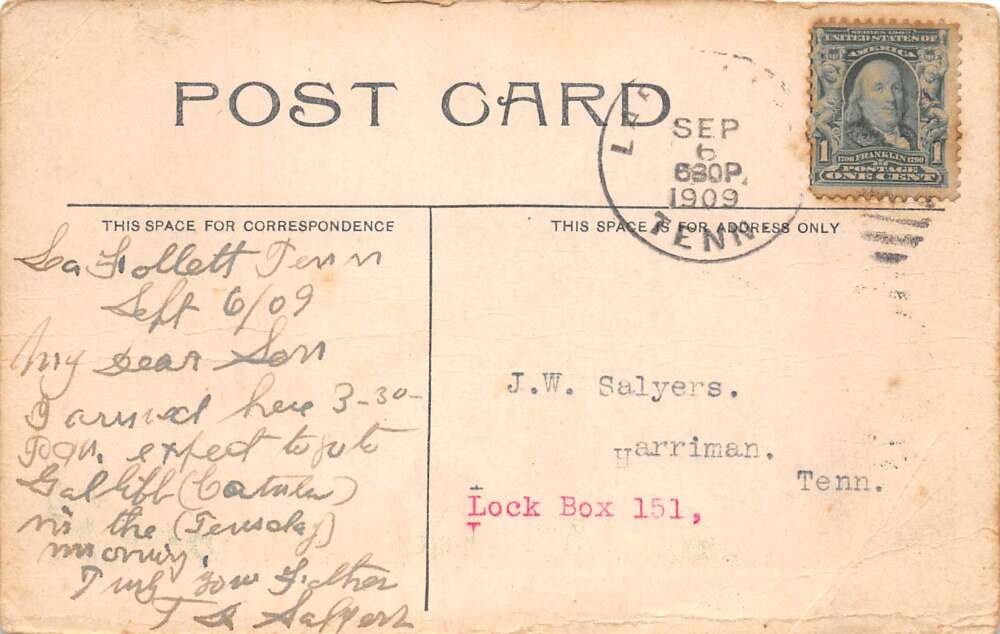 POST CARD
LAF
SEP
6
630P.
1909
TENN
SERIES 1902
UNITED STATES OF
AMERICA
1 1706 FRANKLIN 1790 1
POSTAGE
ONE CENT
THIS SPACE FOR CORRESPONDENCE
THIS SPACE IS FOR ADDRESS ONLY
La Follett Tenn
Sept 6/09
My Dear Son
I arrived here 3-30-
Pm, expect to go to
in the (Tuesday)
morning.
Truly your Father
T Salyers
J.W. Salyers.
Harriman.
Tenn.
Lock Box 151,